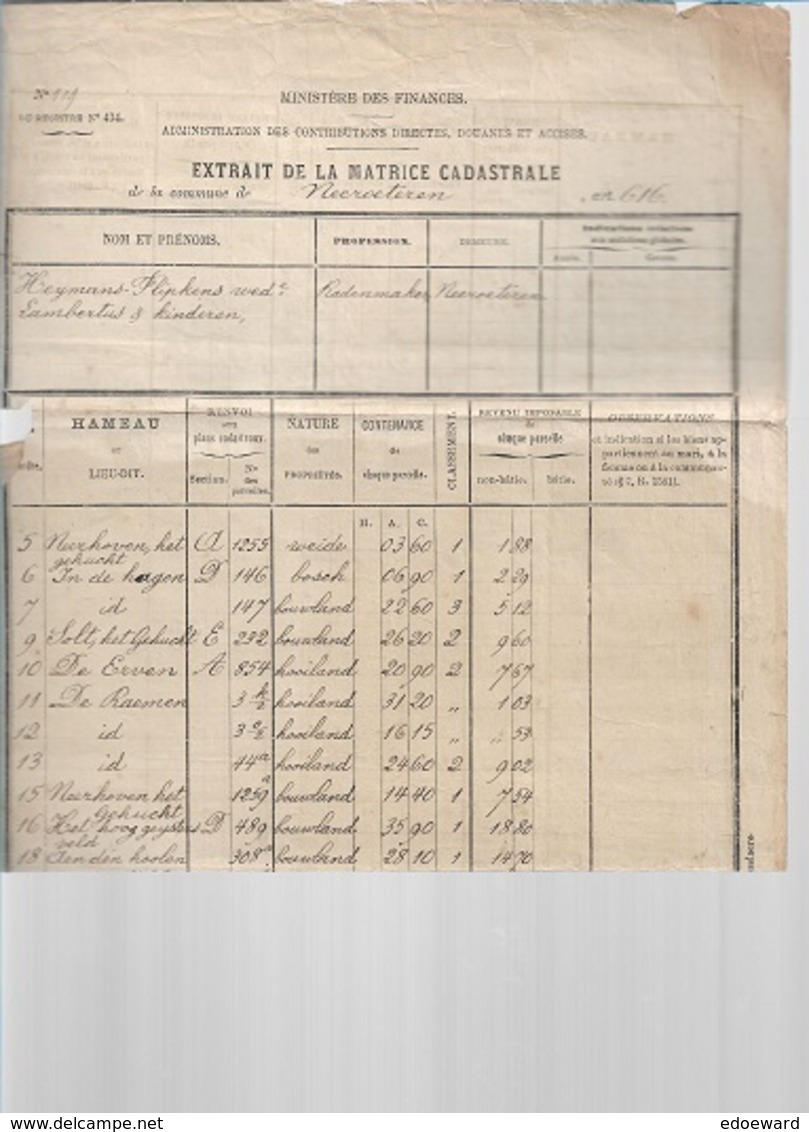 N° 119
MINISTÈRE DES FINANCES.
DU REGISTRE N° 434.
ADMINISTRATION DES CONTRIBUTIONS DIRECTES, DOUANES ET ACCISES.
EXTRAIT DE LA MATRICE CADASTRALE
de la commune de Neeroeteren art 616
NOM ET PRÉNOMS. PROFESSION. DEMEURE.
Année.
Heymans-Flipkens wed.e Radenmaker Neeroeteren
Lambertus & kinderen,
HAMEAU ou LIEU-DIT.
RENVOI aux plans cadastraux.
Section. Nos des parcelles.
NATURE des PROPRIÉTÉS.
CONTENANCE de chaque parcelle.
CLASSEMENT.
REVENU IMPOSABLE de chaque parcelle
non-bâtie. bâtie.
OBSERVATIONS
et indication si les biens ap-
partiennent au mari, à la
femme ou à la communau-
té (§ 7, R. 1581).
H. A. C.
5 Neerhoven, het gehucht A 1255 weide 03 60 1 1 88
6 In de hagen D 146 bosch 06 90 1 2 29
7 id 147 bouwland 22 60 3 5 12
9 Solt, het Gehucht E 292 bouwland 26 20 2 9 60
10 De Erven A 854 hooiland 20 90 2 7 67
11 De Raemen 3 hooiland 31 20 " 1 03
12 id 3 hooiland 16 15 " " 53
13 id 44a hooiland 24 60 2 9 02
15 Neerhoven het gehucht 1259a bouwland 14 40 1 7 54
16 Het hoog geysters veld D 489 bouwland 35 90 1 18 80
18 308a bouwland 28 10 1 14 70
delcampe.net
edoeward